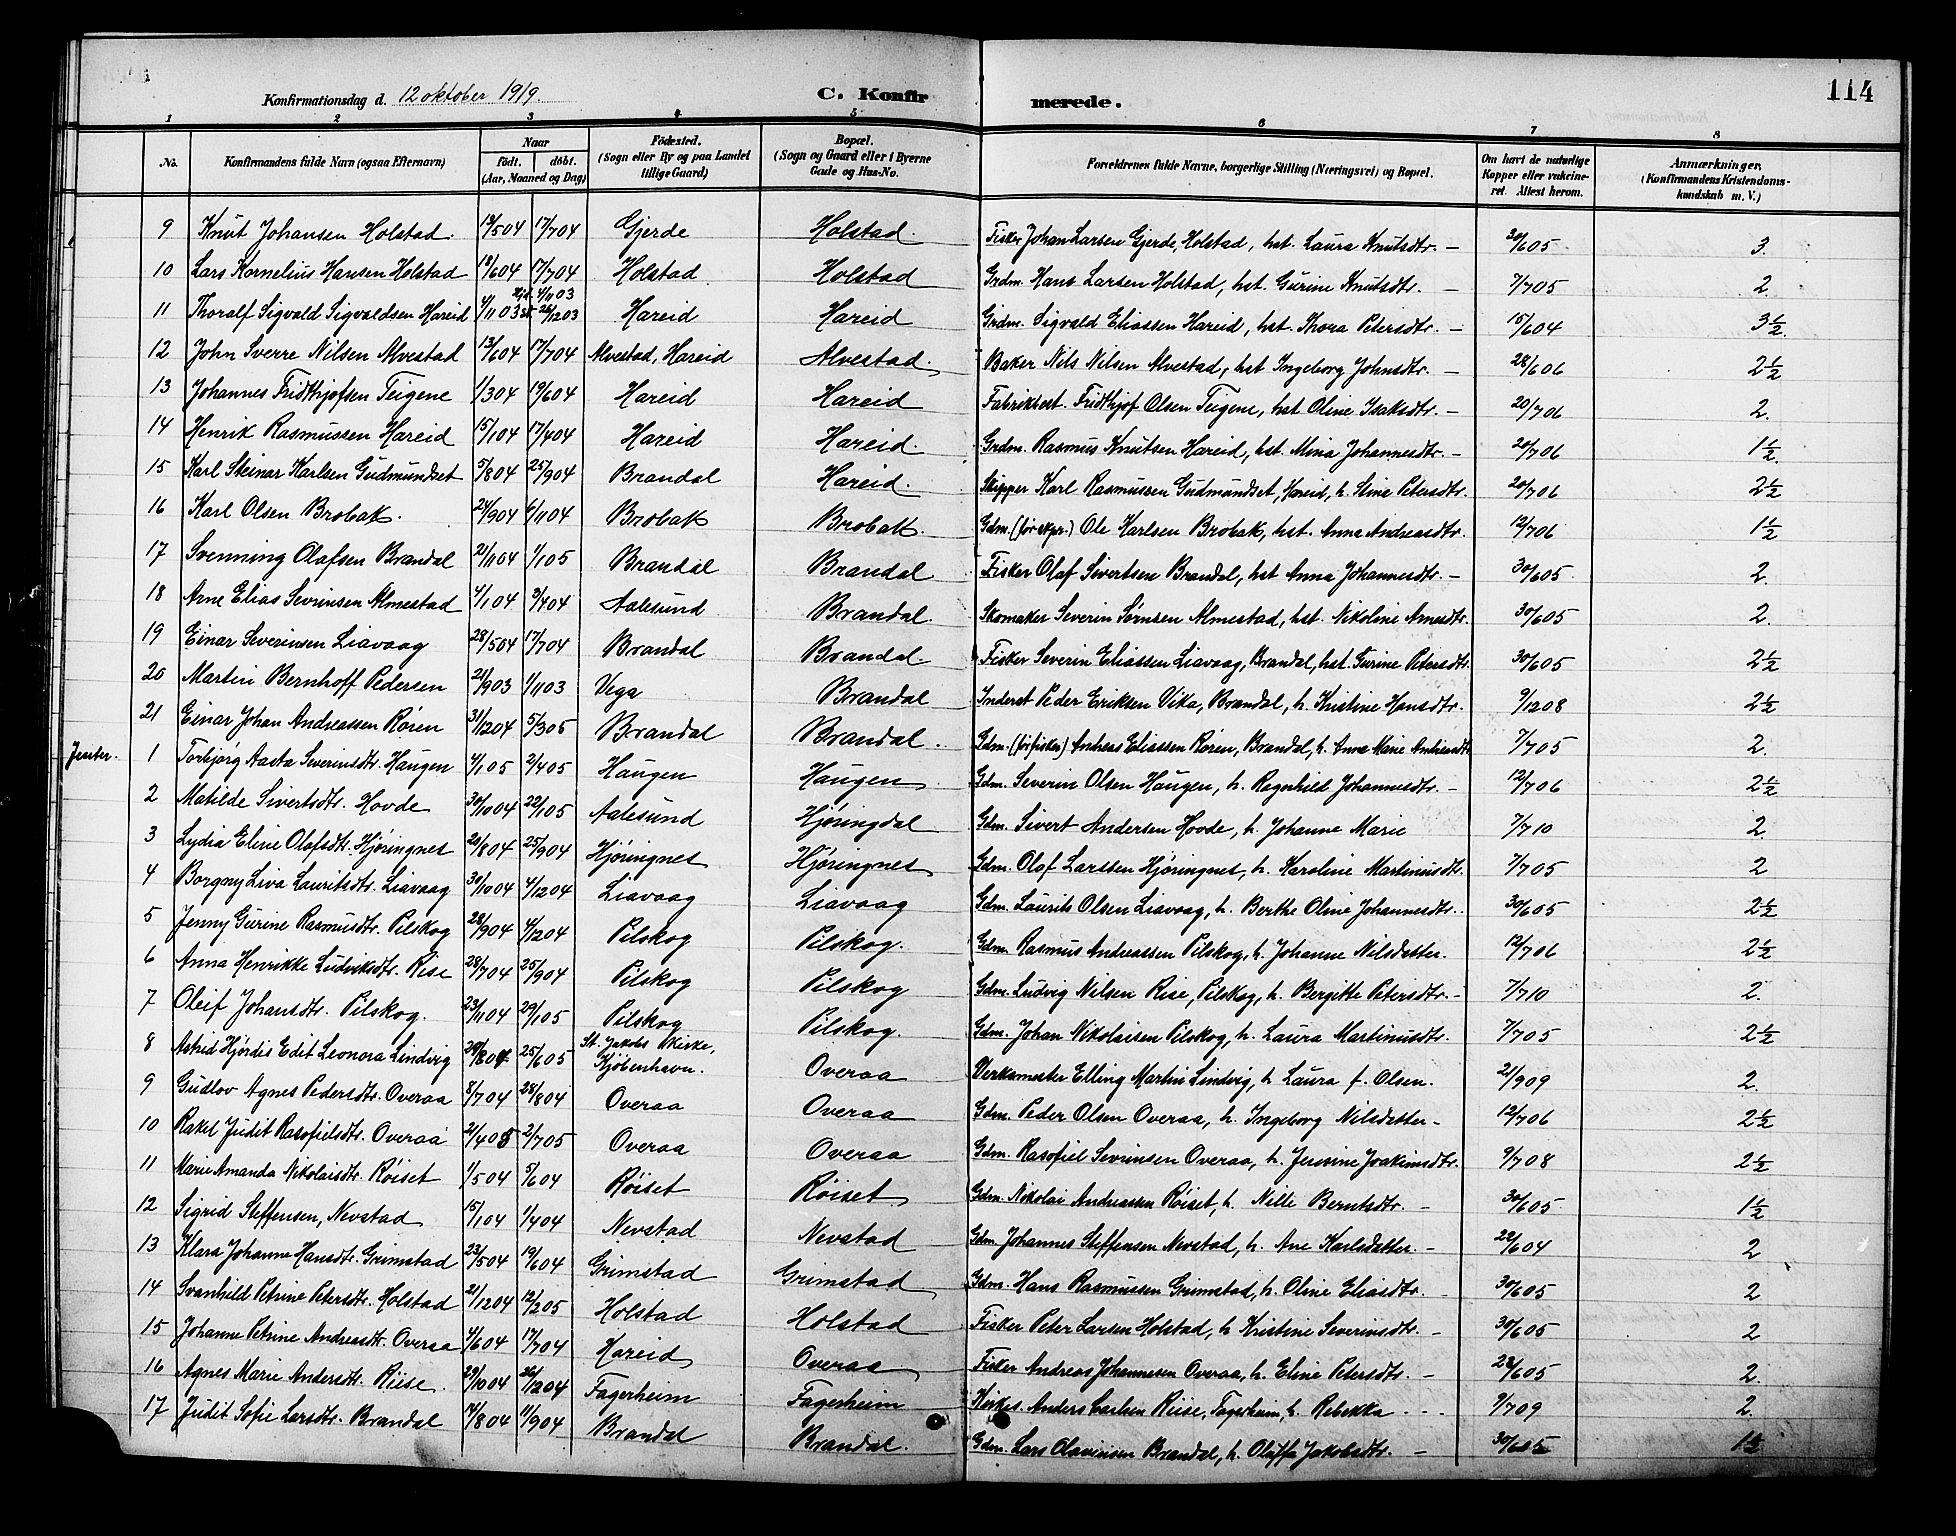 Konfirmationsdag d. 12 oktober 1919. C. Konfirmerede. 114
1 2 3 4 5 6 7 8
No. Konfirmandens fulde Navn (ogsaa Efternavn) Naar født. døbt. (Aar, Maaned og Dag) Fødested. (Sogn eller By og paa Landet tillige Gaard) Bopæl. (Sogn og Gaard eller i Byerne Gade og Hus-No. Forældrenes fulde Navne, borgerlige Stilling (Næringsvei) og Bopæl. Om havt de naturlige Kopper eller vakcineret. Attest herom. Anmærkninger, (Konfirmandens Kristendomskundskab m. V.)
9 Knut Johansen Holstad. 13/504 17/704 Gjerde Holstad. Fisker Johan Larsen Gjerde, Holstad, hst. Laura Knutsdtr. — 30/605 3.
10 Lars Kornelius Hansen Holstad 18/604 17/704 Holstad Holstad Grdm. Hans Larsen Holstad, hst. Gurine Knutsdtr. — 7/705 2.
11 Thoralf Sigvald Sigvaldsen Hareid 4/1103 4/1103 26/1203 Hareid Hareid Grdm. Sigvald Eliassen Hareid, hst. Thora Petersdtr. — 15/604 3½.
12 John Sverre Nilsen Alvestad 13/604 17/704 Alvestad, Hareid Alvestad. Baker Nils Nilsen Alvestad, hst Ingeborg Johnsdtr. — 28/606 2½
13 Johannes Fridthjofsen Teigene 1/304 19/604 Hareid Hareid Fabrikbest. Fridthjof Olsen Teigene, hst Oline Isaksdtr. — 20/706 2.
14 Henrik Rasmussen Hareid 15/104 17/404 Hareid Hareid. Grdm. Rasmus Knutsen Hareid, hst. Mina Johannesdtr. — 20/706 1½.
15 Karl Steinar Karlsen Gudmundset 5/804 25/904 Brandal Hareid. Skipper Karl Rasmussen Gudmundset, Hareid, h. Sline Petersdtr. 20/706 2½
16 Karl Olsen Brobak. 24/904 6/1104 Brobak Brobak. Gdm. (før skpr.) Ole Karlsen Brobak, hst. Anna Andreasdtr. 12/706 1½
17 Svenning Olafsen Brandal 21/1104 1/105 Brandal Brandal Fisker Olaf Sivertsen Brandal, hst Anna Johannesdtr. — 30/605. 2.
18 Arne Elias Sevrinsen Almestad 4/104 3/404 Aalesund Brandal. Skomaker Severin Sørnsen Almestad, hst. Nikoline Arnesdtr. 30/605 2.
19 Einar Severinsen Liavaag 28/504 17/704 Brandal Brandal. Fisker Severin Eliassen Liavaag, Brandal, hst. Gurine Petersdtr. 30/605 2½
20 Martin Bernhoff Pedersen 21/903 1/1103 Vega Brandal Inderst Peder Eriksen Vika, Brandal, h. Kristine Hansdtr. 9/1208 2½
21 Einar Johan Andreassen Røren 31/1204 5/305 Brandal Brandal. Gdm. (før fisker) Andreas Eliassen Røren, Brandal, h. Anna Marie Andreasdtr. 7/705 2.
Jenter. 1 Torbjørg Aasta Severinsdtr. Haugen 4/105 2/405 Haugen Haugen Gdm. Severin Olsen Haugen, h. Ragnhild Johannesdtr. — 12/706 2½
2 Matilde Sivertsdtr. Hovde 30/1004 22/105 Aalesund Hjøringdal Gdm. Sivert Andersen Hovde, h. Johanne Marie 7/710 2.
3 Lydia Eline Olafsdtr. Hjøringnes 20/804 25/904 Hjøringnes Hjøringnes Gdm. Olaf Larssen Hjøringnes, h. Karoline Martinusdtr. 7/705 2
4 Borgny Liva Lauritsdtr. Liavaag 30/1004 4/1204 Liavaag Liavaag Gdm. Laurits Olsen Liavaag, h. Berthe Oline Johannesdtr. 30/605 2½
5 Jenny Gurine Rasmusdtr. Pilskog 28/904 4/1204 Pilskog Pilskog. Gdm. Rasmus Andreassen Pilskog, h. Johanne Nilsdatter. 12/706 2½
6 Anna Henrikke Ludviksdtr. Rise 28/704 25/904 Pilskog Pilskog Gdm. Ludvig Nilsen Rise, Pilskog, h. Bergitte Petersdtr. — 7/710 2.
7 Oleif Johansdtr. Pilskog. 23/1104 29/105 Pilskog Pilskog. Gdm. Johan Nikolaisen Pilskog, h. Laura Martinusdtr. 7/705 2½
8 Astrid Hjørdis Edit Leonora Lindvig 29/804 25/605 St. Jakobs Kirke, Kjøbenhavn. Overaa Verksmester Elling Martin Lindvig, h. Laura f. Olsen. 21/909 2.
9 Gudlov Agnes Pedersdtr. Overaa 8/704 28/804 Overaa Overaa Gdm. Peder Olsen Overaa, h. Ingeborg Nilsdatter — 12/706 2½
10 Rakel Judit Rasofielsdtr. Overaa 2/405 2/705 Overaa Overaa Gdm. Rasofiel Sevrinsen Overaa, h. Jensine Joakimsdtr. 9/708 2½
11 Marie Amanda Nikolaisdtr. Røiset 1/504 5/604 Røiset Røiset. Gdm. Nikolai Andreassen Røiset, h. Nille Berntsdtr. — 30/605 1½
12 Sigrid Steffensen, Nevstad 15/104 1/404 Nevstad Nevstad Gdm. Johannes Steffensen Nevstad, h. Ane Karlsdatter. — 22/604 2
13 Klara Johanne Hansdtr. Grimstad 23/504 19/604 Grimstad Grimstad Gdm. Hans Rasmussen Grimstad, h. Oline Eliasdtr. — 30/605 2
14 Svanhild Petrine Petersdtr. Holstad 21/1204 12/205 Holstad Holstad Fisker Peter Larsen Holstad, h Kristine Severinsdtr. — 30/605 2
15 Johanne Petrine Andreasdtr. Overaa 4/604 17/704 Hareid Overaa Fisker Andreas Johannesen Overaa, h. Eline Petersdtr. — 28/605 2.
16 Agnes Marie Andersdtr. Riise. 29/1004 26/1204 Fagerheim Fagerheim Kirkes. Anders Carlsen Riise, Fagerheim, h. Rebekka 9/709 2.
17 Judit Sofie Larsdtr. Brandal 14/804 11/904 Brandal Brandal. Gdm. Lars Olavinsen Brandal, h. Oluffa Jakobsdtr. — 30/605 1½